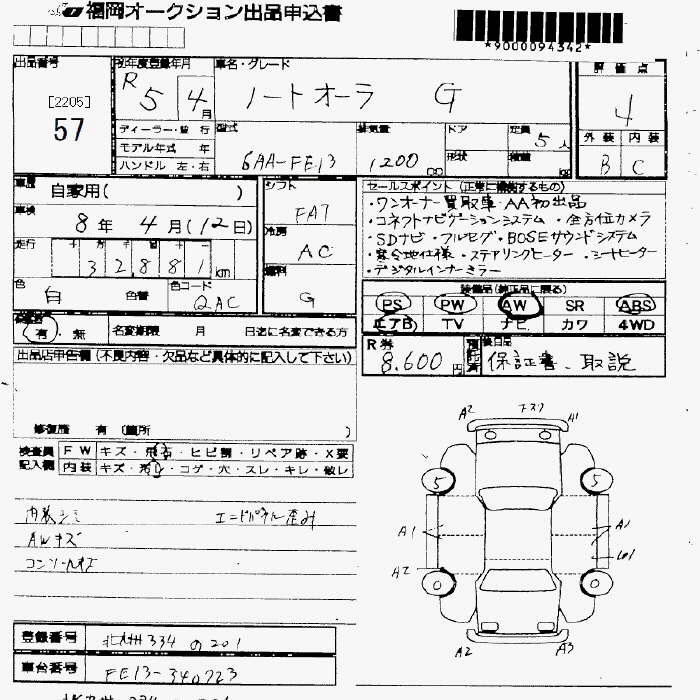 福岡オークション出品申込書
*9000094342*
出品番号 初年度登録年月 車名・グレード 評価点
[2205]
57
R5 4月 ノートオーラ G 4
ディーラー・並行 型式 排気量 ドア 定員 5人
モデル年式 年 形状 積量
ハンドル 左・右 6AA-FE13 1200 cc
外装 内装
B C
車歴 自家用( ) シフト FAT
車検 8年 4月(12日) 冷房 AC
走行 十 万 千 百 十 一
32881 km 燃料 G
色 白 色替 色コード QAC
有 無 名変期限 月 日迄に名変できる方
セールスポイント (正常に機能するもの)
・ワンオーナー買取車・AA初出品
・コネクトナビゲーションシステム・全方位カメラ
・SDナビ・フルセグ・BOSEサウンドシステム
・寒冷地仕様・ステアリングヒーター・シートヒーター
・デジタルインナーミラー
装備品(純正品に限る)
PS PW AW SR ABS
エアB TV ナビ カワ 4WD
R券 8,600円 預託済 後日品 保証書、取説
出品店申告欄 (不良内容・欠品など具体的に記入して下さい)
修復歴 有 (箇所 )
検査員記入欄 FW キズ・飛石・ヒビ割・リペア跡・X要
内装 キズ・汚れ・コゲ・穴・スレ・キレ・破レ
内装シミ エンドパネル歪み
AWキズ
コンソールキズ
A2 A1
5 5
A1 A1
A2
0 0
A2 A3
登録番号 北九州 334 の 201
車台番号 FE13-340723